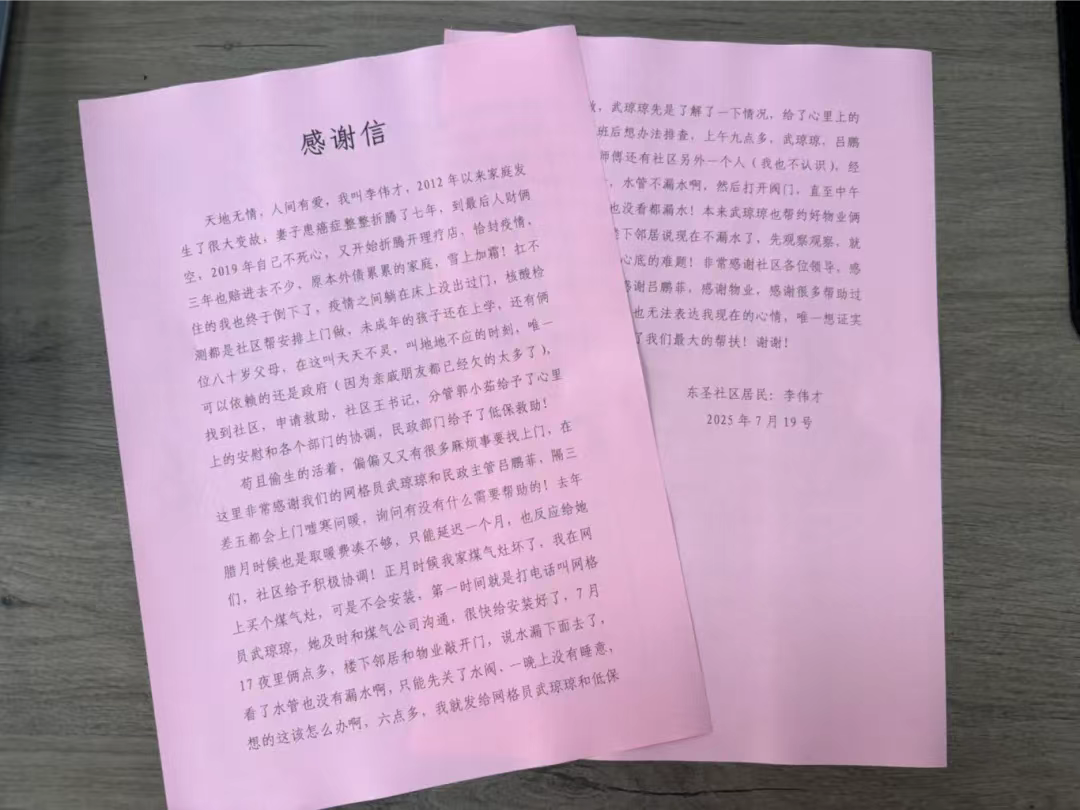 感谢信
天地无情，人间有爱，我叫李伟才，2012年以来家庭发
生了很大变故，妻子患癌症整整折腾了七年，到最后人财俩
空，2019年自己不死心，又开始折腾开理疗店，恰封疫情，
三年也赔进去不少，原本外债累累的家庭，雪上加霜！扛不
住的我也终于倒下了，疫情之间躺在床上没出过门，核酸检
测都是社区帮安排上门做，未成年的孩子还在上学，还有俩
位八十岁父母，在这叫天天不灵，叫地地不应的时刻，唯一
可以依赖的还是政府（因为亲戚朋友都已经欠的太多了），
找到社区，申请救助，社区王书记，分管郭小茹给予了心里
上的安慰和各个部门的协调，民政部门给予了低保救助！
苟且偷生的活着，偏偏又又有很多麻烦事要找上门，在
这里非常感谢我们的网格员武琼琼和民政主管吕鹏菲，隔三
差五都会上门嘘寒问暖，询问有没有什么需要帮助的！去年
腊月时候也是取暖费凑不够，只能延迟一个月，也反应给她
们，社区给予积极协调！正月时候我家煤气灶坏了，我在网
上买个煤气灶，可是不会安装，第一时间就是打电话叫网格
员武琼琼，她及时和煤气公司沟通，很快给安装好了，7月
17夜里俩点多，楼下邻居和物业敲开门，说水漏下面去了，
看了水管也没有漏水啊，只能先关了水阀、一晚上没有睡意，
想的这该怎么办啊，六点多，我就发给网格员武琼琼和低保
，武琼琼先是了解了一下情况，给了心里上的
班后想办法排查，上午九点多，武琼琼，吕鹏
师傅还有社区另外一个人（我也不认识），经
，水管不漏水啊，然后打开阀门，直至中午
也没看都漏水！本来武琼琼也帮约好物业俩
楼下邻居说现在不漏水了，先观察观察，就
心底的难题！非常感谢社区各位领导，感
感谢吕鹏菲，感谢物业，感谢很多帮助过
也无法表达我现在的心情，唯一想证实
了我们最大的帮扶！谢谢！
东圣社区居民：李伟才
2025年7月19号